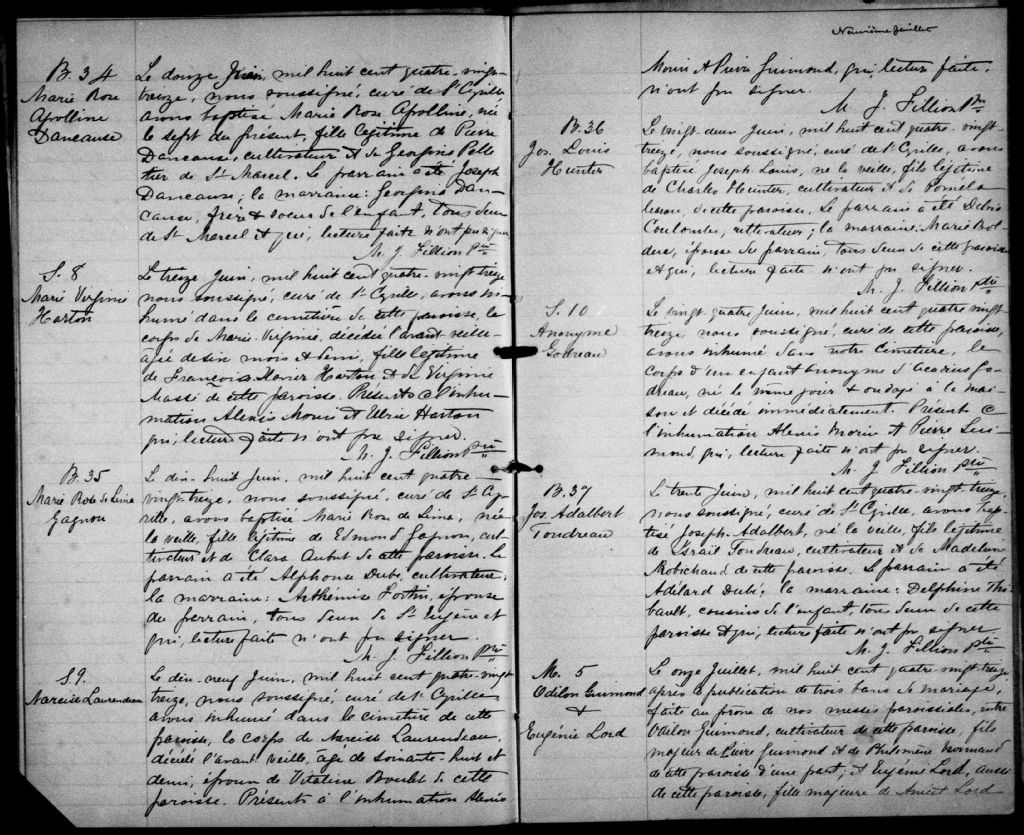 B. 34
Marie Rose
Apolline
Dancause
Le douze Juin, mil huit cent quatre-vingt-
treize, nous soussigné, curé de St Cyrille
avons baptisé Marie Rose Apolline, née
le sept du présent, fille légitime de Pierre
Dancause, cultivateur et de Georgina Pelle
tier de St Marcel. Le parrain a été Joseph
Dancause; la marraine: Georgina Dan-
cause, frère & soeur de l'enfant, tous deux
de St Marcel et qui, lecture faite n'ont pu signer.
M. J. Fillion Ptre
S. 8
Marie Virginie
Harton
Le treize Juin, mil huit cent quatre-vingt treize
nous soussigné, curé de St Cyrille, avons in-
humé dans le cimetière de cette paroisse, le
corps de Marie Virginie, décédée l'avant veille
agée de six mois et demi, fille légitime
de François Xavier Harton et de Virginie
Massé de cette paroisse. Présents à l'inhu-
mation Alexis Morin et Harton
qui, lecture faite n'ont pu signer.
M. J. Fillion Ptre
B. 35
Marie Rose de Lima
Gagnon
Le dix-huit Juin, mil huit cent quatre-
vingt-treize, nous soussigné, curé de St Cy-
rille, avons baptisé Marie Rose de Lima, née
la veille, fille légitime de Edmond Gagnon, cul-
tivateur et de Clara Aubut de cette paroisse. Le
parrain a été Alphonse Dubé, cultivateur;
la marraine: Arthémise Fortin, épouse
du parrain, tous deux de St Eugène et
qui, lecture faite n'ont pu signer.
M. J. Fillion Ptre
S 9.
Narcisse Laurendeau
Le dix-neuf Juin, mil huit cent quatre-vingt
treize, nous soussigné, curé de St Cyrille
avons inhumé dans le cimetière de cette
paroisse, le corps de Narcisse Laurendeau,
décédé l'avant veille, âgé de soixante-huit et
demi, époux de Vitaline Boulet de cette
paroisse. Présents à l'inhumation Alexis
Neuvième feuillet
Morin et Pierre Guimond, qui, lecture faite,
n'ont pu signer.
M. J. Fillion Ptre
B. 36
Jos. Louis
Hunter
Le vingt deux Juin, mil huit cent quatre-vingt-
treize, nous soussigné, curé de St Cyrille, avons
baptisé Joseph Louis, né la veille, fils légitime
de Charles Hunter, cultivateur et de
de cette paroisse. Le parrain a été
Coulombe, cultivateur; la marraine: Marie
épouse du parrain, tous deux de cette paroisse
et qui, lecture faite n'ont pu signer.
M. J. Fillion Ptre
S. 10
Anonyme
Godreau
Le vingt quatre Juin, mil huit cent quatre vingt
treize, nous soussigné, curé de cette paroisse,
avons inhumé dans notre cimetière, le
corps d'un enfant anonyme d'Acarius Go-
dreau, né le même jour & ondoyé à la mai
son et décédé immédiatement. Présents à
l'inhumation Alexis Morin et Pierre Gui
mond, qui, lecture faite n'ont pu signer.
M. J. Fillion Ptre
B. 37
Jos. Adalbert
Toudreau
Le trente Juin, mil huit cent quatre-vingt-treize,
nous soussigné, curé de St Cyrille, avons bap-
tisé Joseph Adalbert, né la veille, fils légitime
de Israil Toudreau, cultivateur et de Madeleine
Robichaud de cette paroisse. Le parrain a été
Adélard Dubé; la marraine: Delphine Thi-
bault, cousins de l'enfant, tous deux de cette
paroisse et qui, lecture faite n'ont pu signer
M. J. Fillion Ptre
M. 5
Odilon Guimond
&
Eugénie Lord
Le onze Juillet, mil huit cent quatre-vingt treize
après la publication de trois bans de mariage,
faite au prône de nos messes paroissiales, entre
Odilon Guimond, cultivateur de cette paroisse, fils
majeur de Pierre Guimond et de Philomène Normand
de cette paroisse d'une part; et Eugénie Lord, aussi
de cette paroisse, fille majeure de Amict Lord